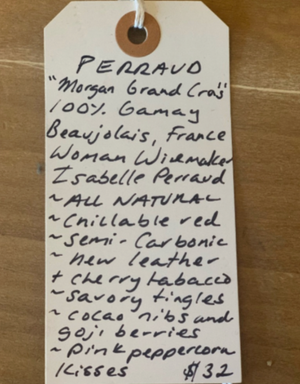 PERRAUD
"Morgan Grand Cras"
100% Gamay
Beaujolais, France
Woman Winemaker
Isabelle Perraud
~ALL NATURAL
~Chillable red
~semi-Carbonic
~new leather
+ cherry tabacco
~savory tingles
~cocao nibs and
goji berries
~pink peppercorn
kisses $32